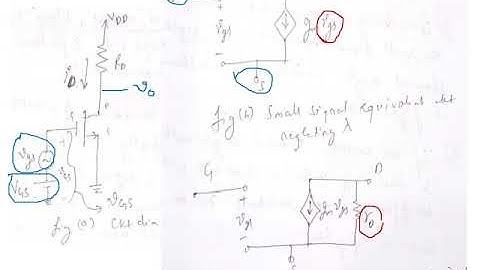 VDD
RD
iD
vo
D
G
S
vgs
VGS
vGS
fig (a) Ckt dia
+
vgs
-
gm vgs
S
fig (b) Small signal equivalent ckt
neglecting λ
G
D
+
vgs
-
gm vgs
ro
S